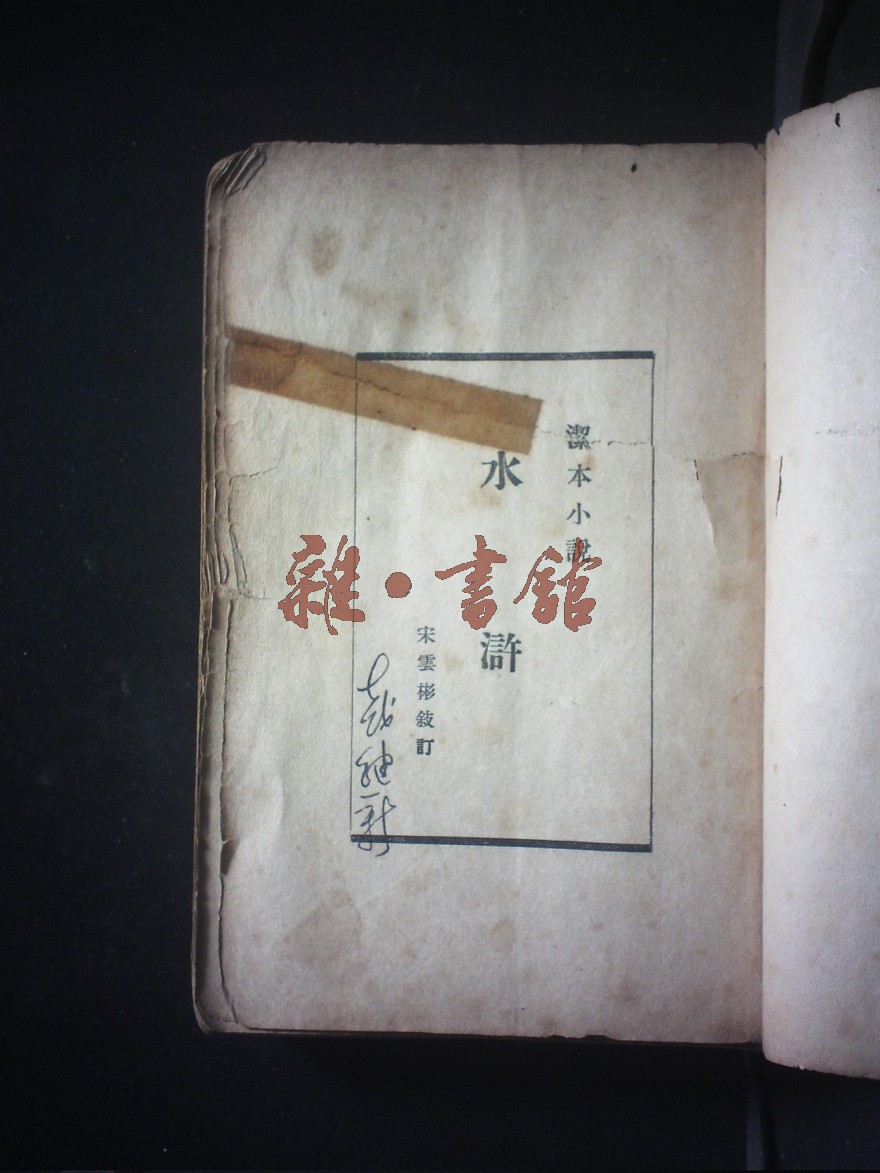 潔本小說
水滸
宋雲彬敍訂
雜·書館